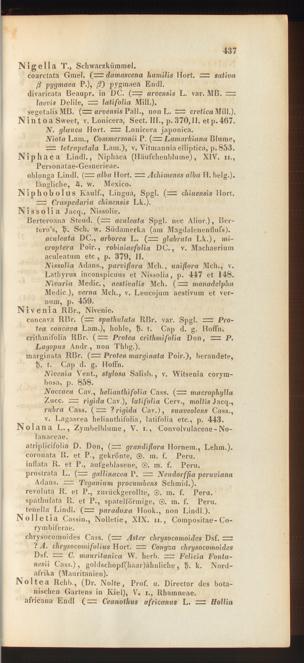 437
Nigella T., Schwarzkümmel.
coarctata Gmel. (= damascena humilis Hort. = sativa
β pygmaea P.), β) pygmaea Endl.
divaricata Beaupr. in DC. (= arvensis L. var. MB. =
laevis Delile, = latifolia Mill.).
segetalis MB. (= arvensis Pall., non L. = cretica Mill.).
Nintoa Sweet, v. Lonicera, Sect. III., p. 370, II. et p. 467.
N. glauca Hort. = Lonicera japonica.
Niota Lam., Commersonii P. (= Lamarkiana Blume,
= tetrapetala Lam.), v. Vitmannia elliptica, p. 853.
Niphaea Lindl., Niphäea (Häufchenblume), XIV. II.,
Personatae-Gesnerieae.
oblonga Lindl. (= alba Hort. = Achimenes alba H. belg.).
längliche, ♃. w. Mexico.
Niphobolus Kaulf., Lingua, Spgl. (= chinensis Hort.
= Craspedaria chinensis Lk.).
Nissolia Jacq., Nissolie.
Berteroana Steud. (= aculeata Spgl. nec Alior.), Ber-
tero's, ♄. Sch. w. Südamerka (am Magdalenenfluss).
aculeata DC., arborea L. (= glabrata Lk.), mi-
croptera Poir., robiniaefolia DC., v. Machaerium
aculeatum etc., p. 379, II.
Nissolia Adans., parviflora Mch., uniflora Mch., v.
Lathyrus inconspicuus et Nissolia, p. 447 et 448.
Nivaria Medic., aestivalis Mch. (= monadelpha
Medic.), verna Mch., v. Leucojum aestivum et ver-
num, p. 459.
Nivenia RBr., Nivenie.
concava RBr. (= spathulata RBr. var. Spgl. = Pro-
tea concava Lam.), hohle, ♄. t. Cap d. g. Hoffn.
crithmifolia RBr. (= Protea crithmifolia Don, = P.
Lagopus Andr., non Thbg.).
marginata RBr. (= Protea marginata Poir.), berandete,
♄. t. Cap d. g. Hoffn.
Nivenia Vent., stylosa Salisb., v. Witsenia corym-
bosa, p. 858.
Noccaea Cav., helianthifolia Cass. (= macrophylla
Zucc. = rigida Cav.), latifolia Cerv., mollis Jacq.,
rubra Cass. (= ? rigida Cav.), suaveolens Cass.,
v. Lagascea helianthifolia, latifolia etc., p. 443.
Nolana L., Zymbelblume, V. I., Convolvulaceae-No-
lanaceae.
atriplicifolia D. Don, (= grandiflora Hornem., Lehm.).
coronata R. et P., gekrönte, ☉. m. f. Peru.
inflata R. et P., aufgeblasene, ☉. m. f. Peru.
prostrata L. (= gallinacea P. = Neudorffia peruviana
Adans. = Teganium procumbens Schmid.).
revoluta R. et P., zurückgerollte, ☉. m. f. Peru.
spathulata R. et P., spatelförmige, ☉. m. f. Peru.
tenella Lindl. (= paradoxa Hook., non Lindl.).
Nolletia Cassin., Nolletie, XIX. II., Compositae-Co-
rymbiferae.
chrysocomoides Cass. (= Aster chrysocomoides Dsf. =
? A. chrysocomifolius Hort. = Conyza chrysocomoides
Dsf. = C. mauritanica W. herb. = Felicia Fonta-
nesii Cass.), goldschopf(haar)ähnliche, ♄. k. Nord-
afrika (Mauritanien).
Noltea Rchb., (Dr. Nolte, Prof. u. Director des bota-
nischen Gartens in Kiel), V. I., Rhamneae.
africana Endl (= Ceanothus africanus L. = Hollia